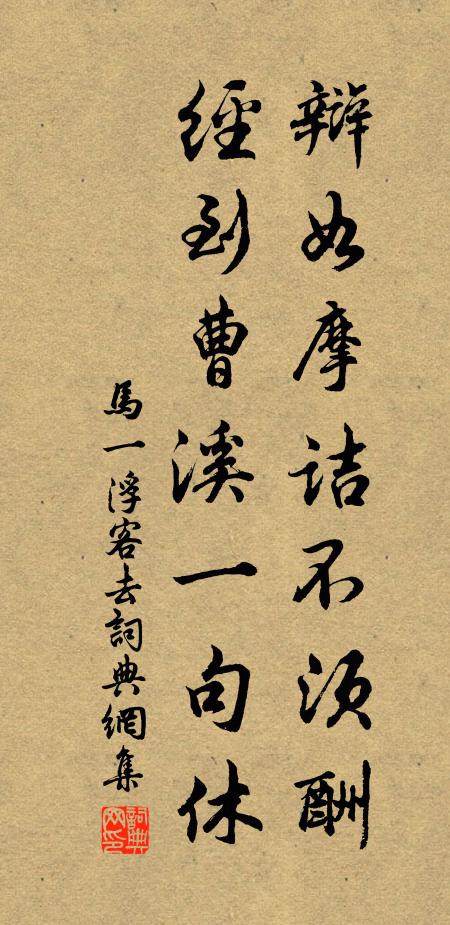 辯如摩詰不須酬
經到曹溪一句休
馬一浮客去詞典網集
詞典网印